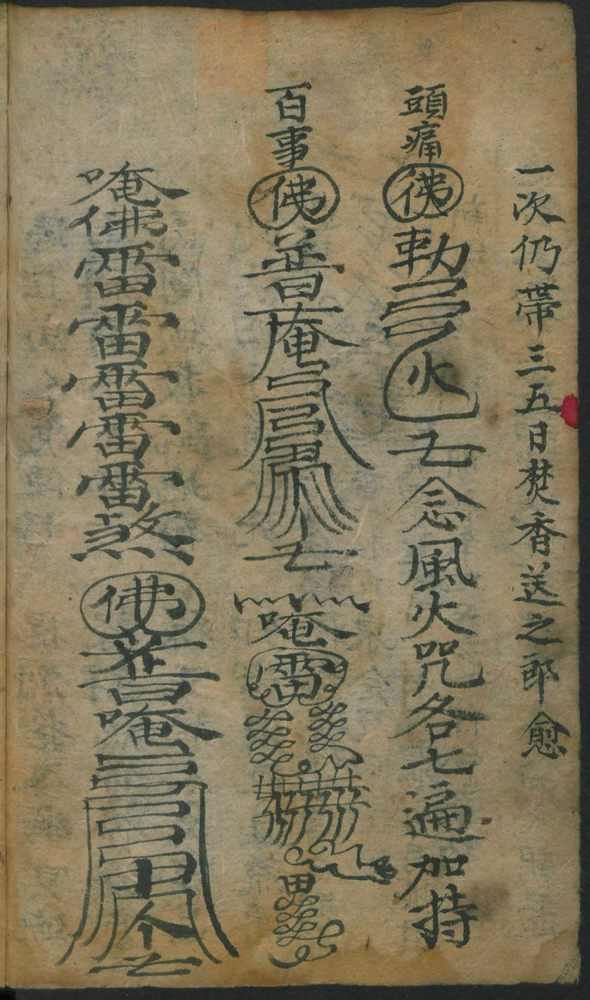 一次仍帶三五日焚香送之即愈
頭痛 佛 勅 火 念風火咒各七遍加持
百事 佛 普庵
唵 雷 田
唵佛雷雷雷雷雷煞
佛 普唵